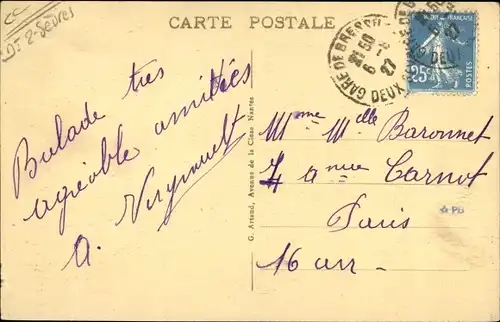 CC
Dt 2-Sèvres
CARTE POSTALE
GARE DE BRESSUIRE
21 50
6 - 8
27
DEUX
25c
POSTES
Balade très
agréable amitiés
A.
G. Artaud, Avenue de la Close Nantes
Mme Mlle Baronnet
7 Avnue Carnot
Paris
16 arr
☆PB